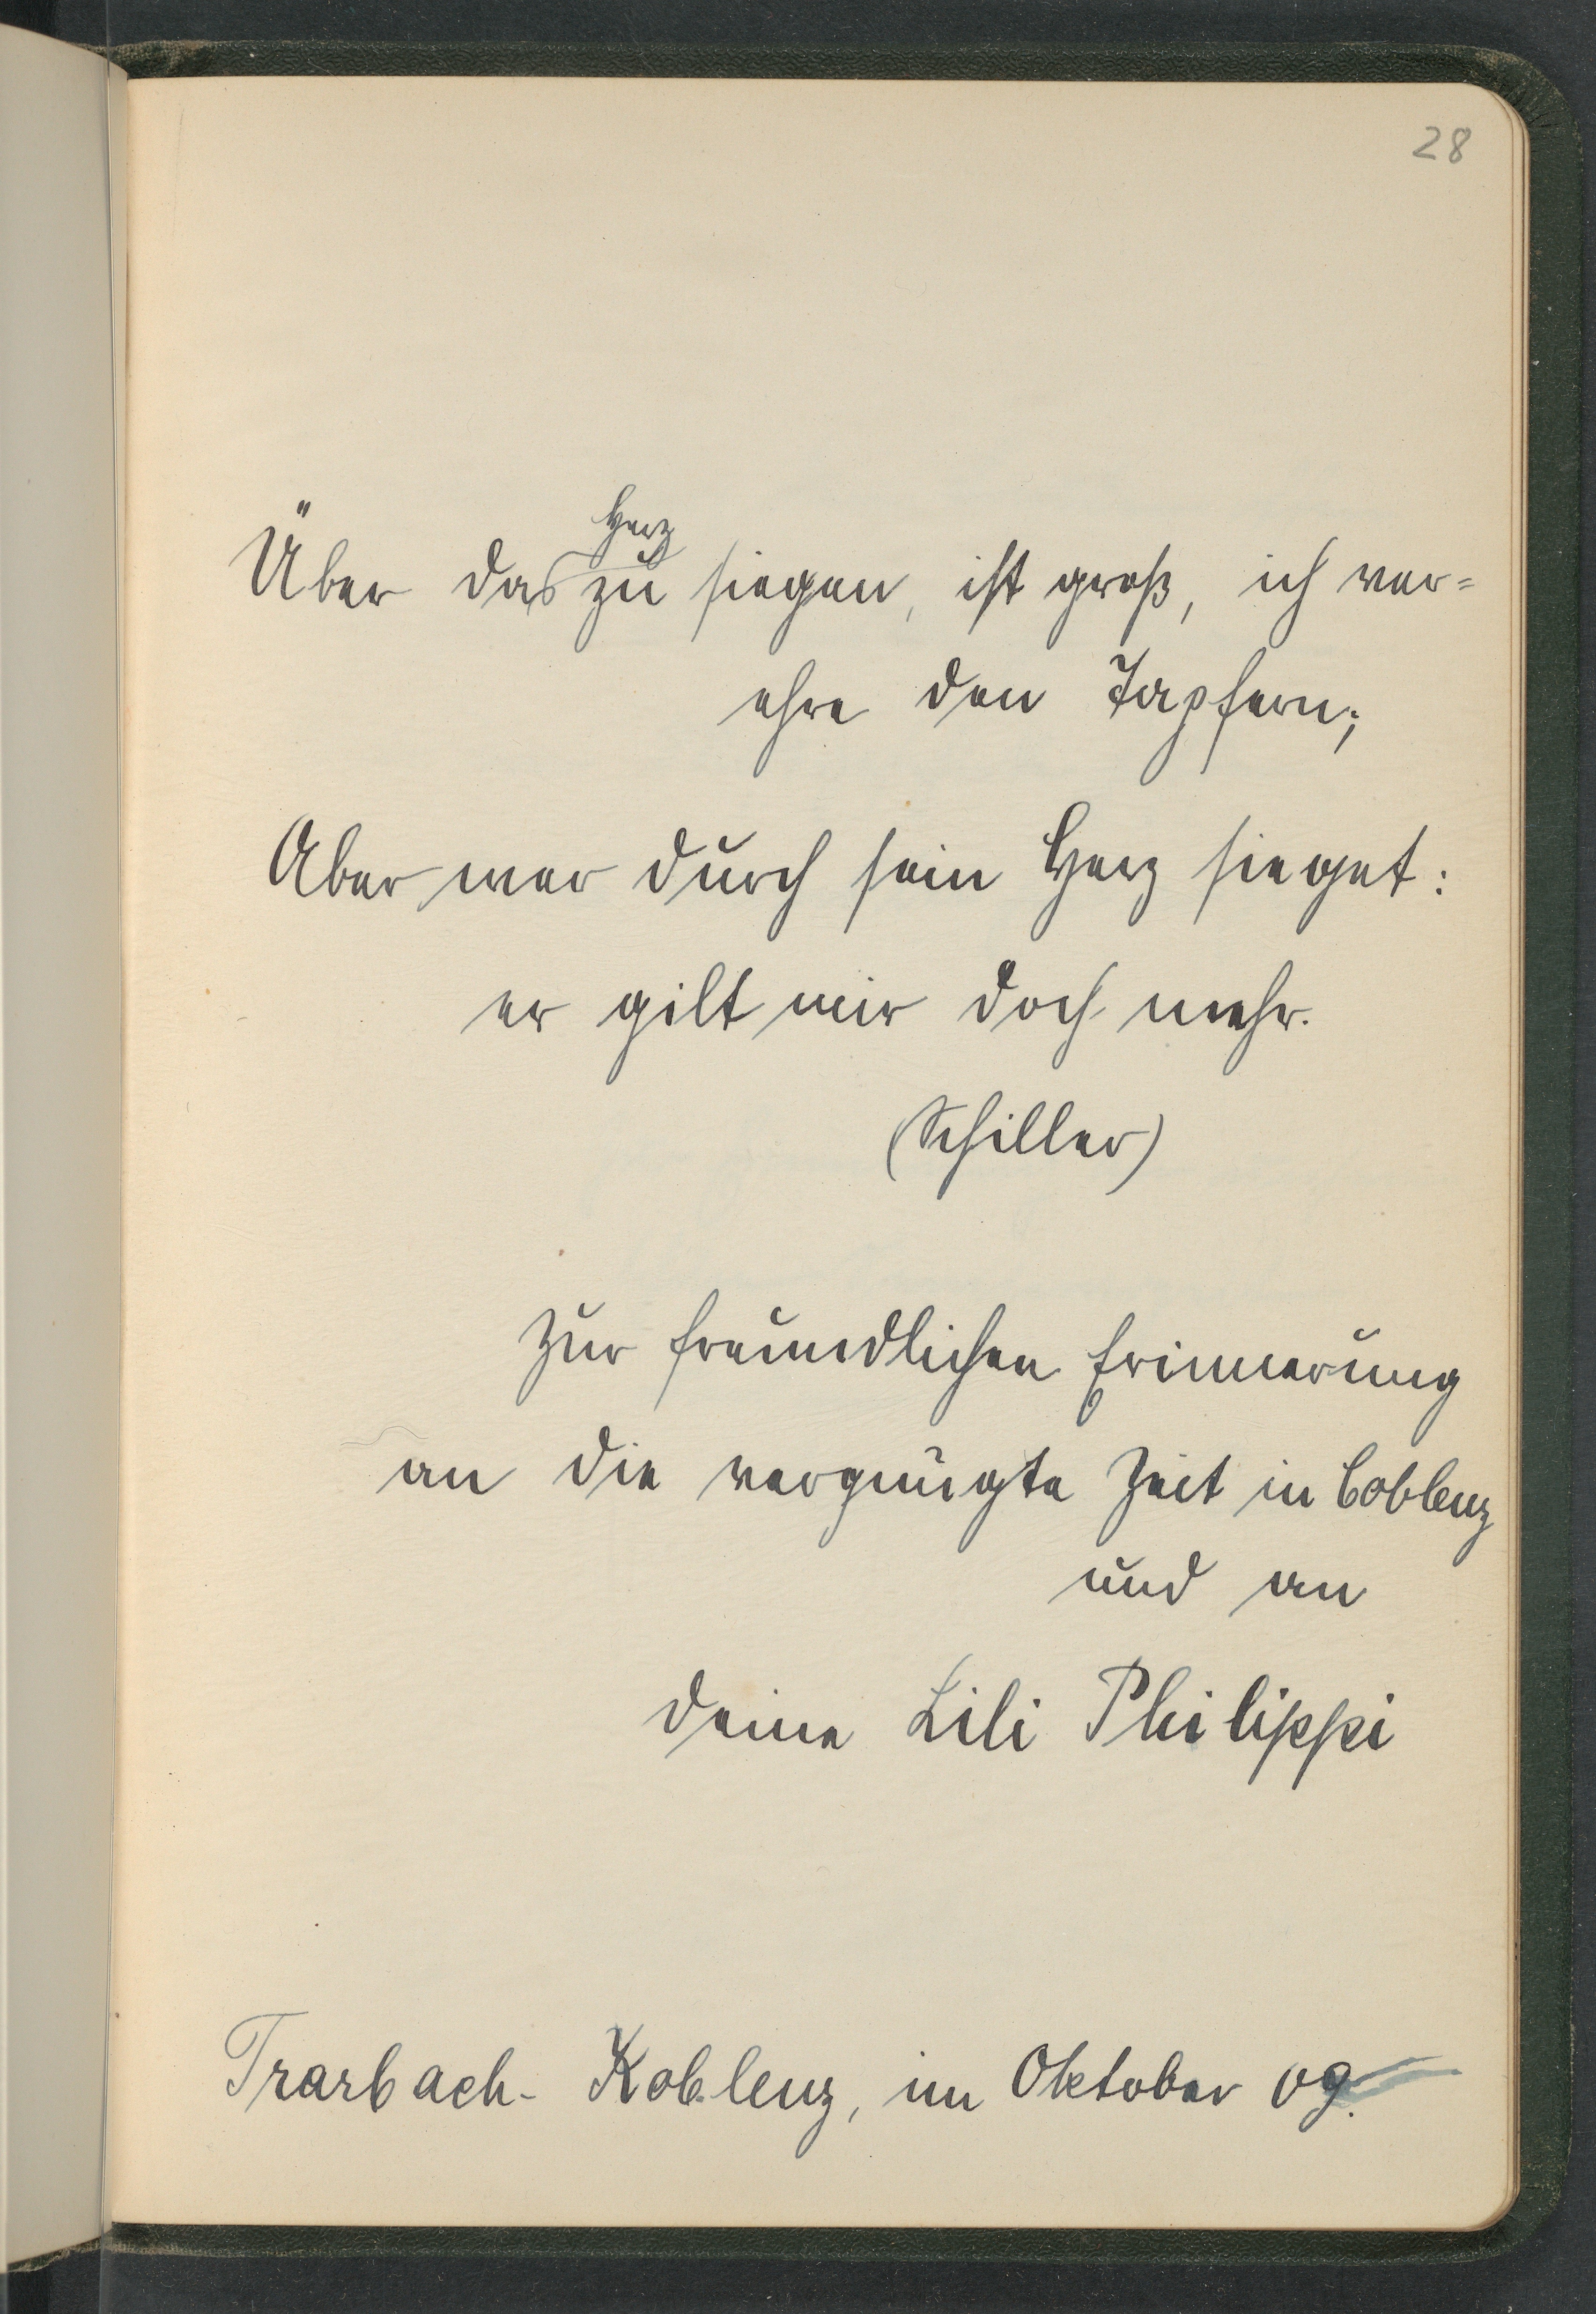 28
Über das Herz zu siegen, ist groß, ich ver=
ehre den Tapfern;
Aber wer durch sein Herz sieget:
er gilt mir doch mehr.
(Schiller)
Zur freundlichen Erinnerung
an die vergnügte Zeit in Coblenz
und an
deine Lili Philippi
Trarbach- Koblenz, im Oktober 09.